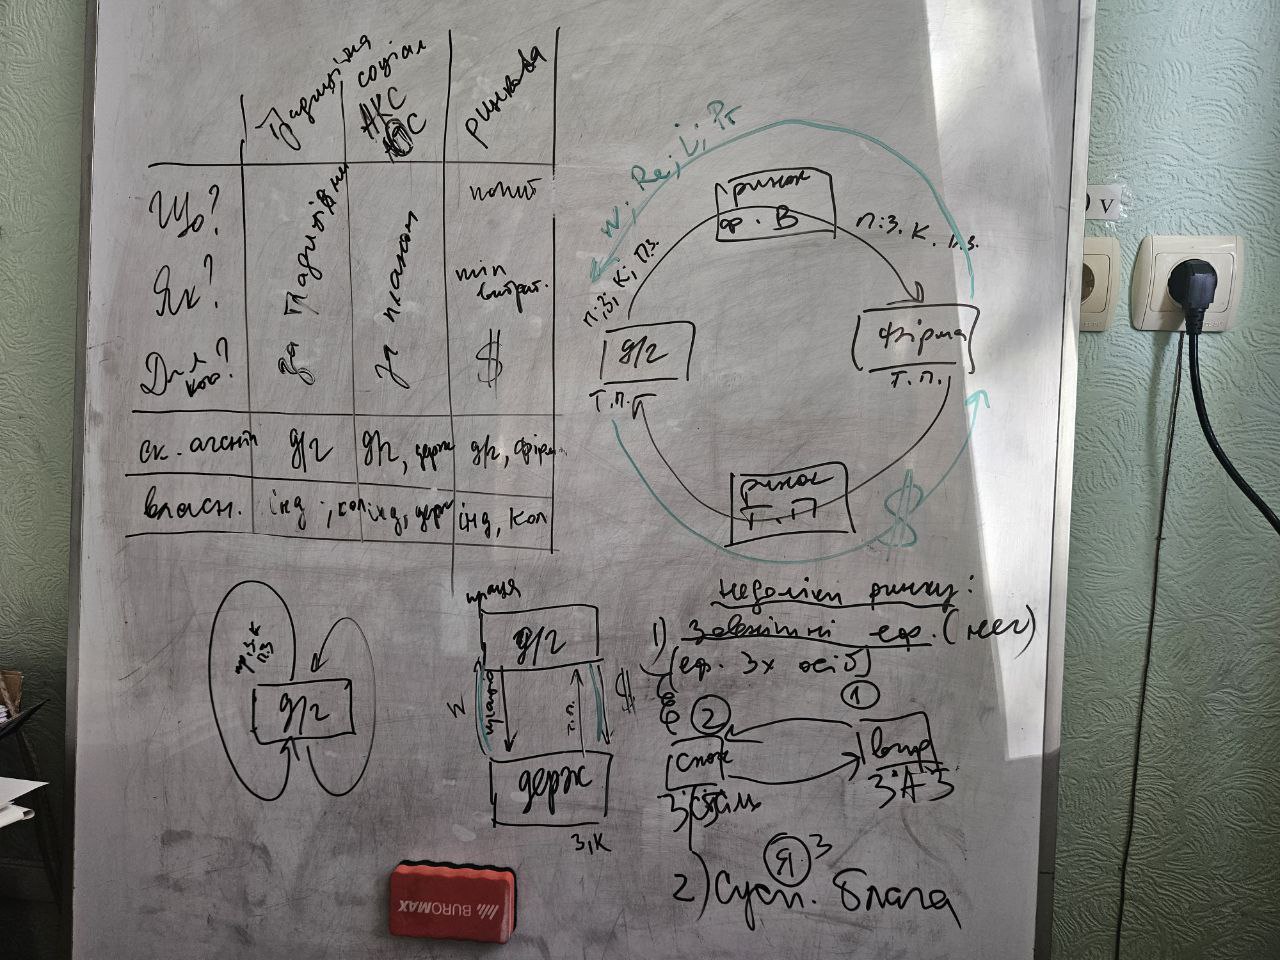 Традиційна
соціал
АКС
ринкова
Що?
Як?
Для кого?
За традиціями
за планом
попит
min витрат.
$
ек. агенти
д/г
д/г, держ
д/г, фірми
власн.
інд, кол
інд, держ
інд, кол
W, Re, i, Pr
ринок
ф. В
п.з, К, п.з.
п.з. К. п.з.
д/г
т.п.
Фірма
т.п.
ринок
Т.П
$
пр, з, К
п.з
д/г
праця
д/г
W
праця
т.п.
$
держ
З, К
недоліки ринку:
1) Зовнішні еф. (нег)
(еф. 3х осіб)
1
2
спож
вир
ЗАЗ
Я 3
2) Сусп. блага
BUROMAX
V